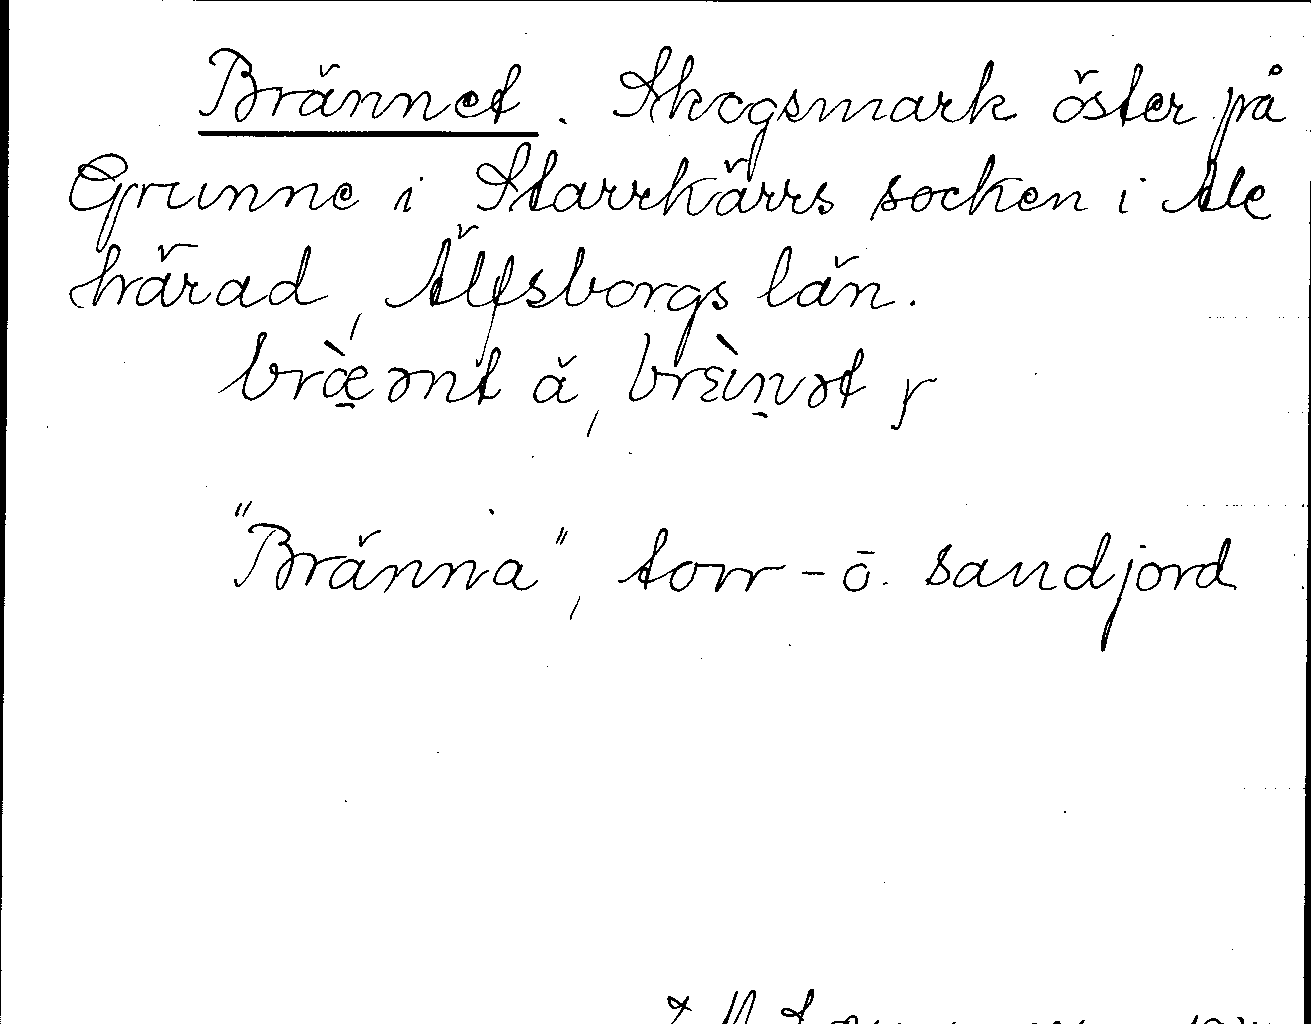 Brännet. Skogsmark öster på
Grunne i Starrkärrs socken i Ale
härad, Älfsborgs län.
bræ̀ənt ǎ, brɛ̀ın̠ət ɼ
"Bränna", torr- ō. sandjord